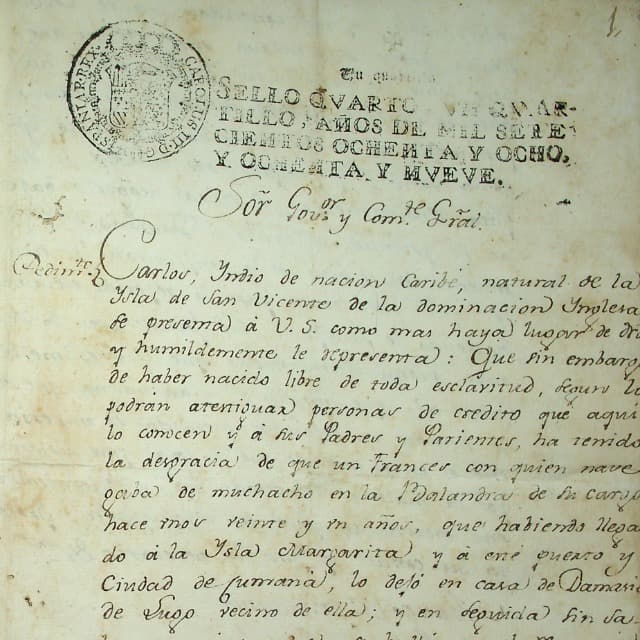 1,
CAROLUS III D G HISPANIAR REX
Un quartillo
SELLO QVARTO VN QVAR-
TILLO, AÑOS DE MIL SETE
CIENTOS OCHENTA Y OCHO,
Y OCHENTA Y NVEVE.
Sor. Govor. y Comte. Gral.
Pedimto.
Carlos, Yndio de nacion Caribe, natural de la
Ysla de San Vicente de la dominacion Ynglesa
se presenta á V. S. como mas haya lugar de dro
y humildemente le representa: Que sin embargo
de haber nacido libre de toda esclavitud, segun lo
podrán atestiguar personas de credito que aqui
lo conocen y á sus Padres y Parientes, ha tenido
la desgracia de que un Frances con quien nave
gaba de muchacho en la Balandra de su cargo
hace mos veinte y un años, que habiendo llega
do á la Ysla Margarita y á este puerto y
Ciudad de Cumaná, lo dejó en casa de Damacio
de Lugo vecino de ella; y en seguida sin sa